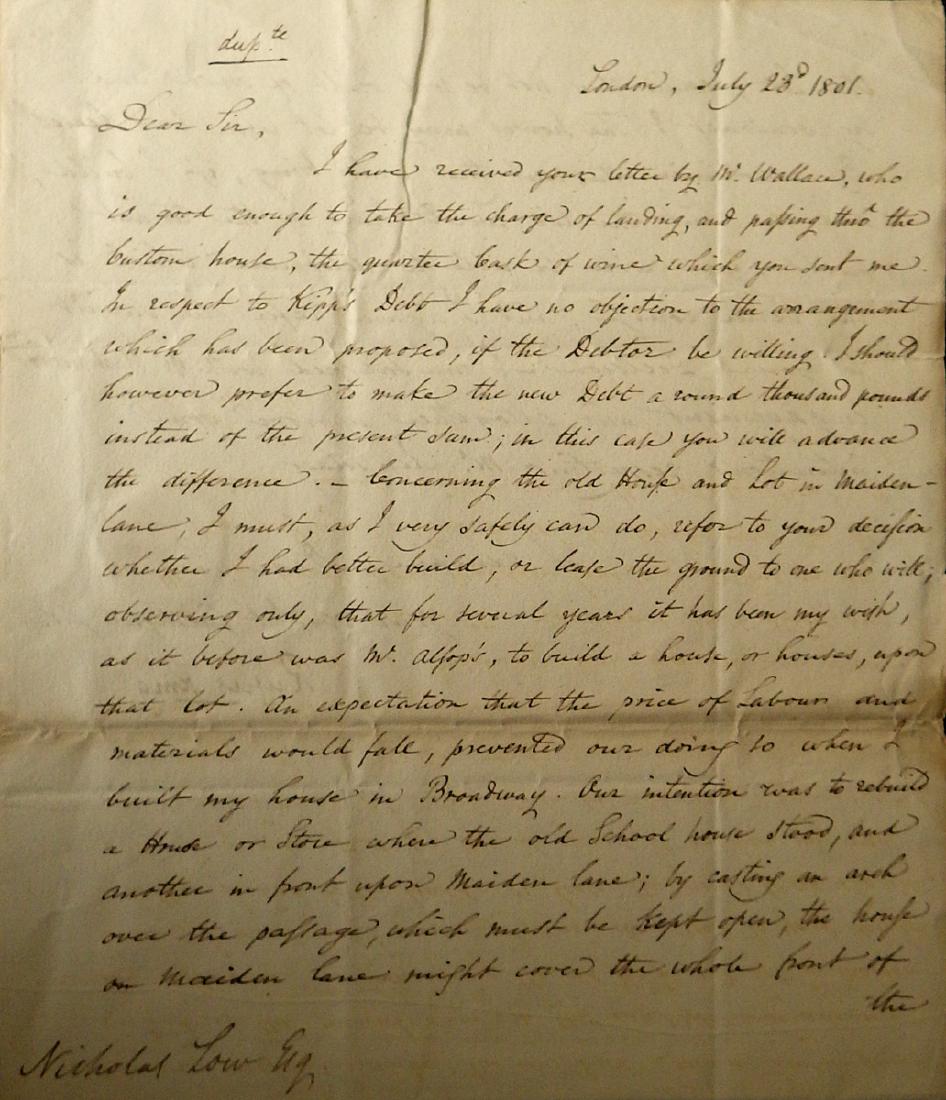 dupte
London, July 23d 1801.
Dear Sir,
I have received your letter by Mr. Wallace, who
is good enough to take the charge of landing, and passing thro' the
Custom house, the quarter Cask of wine which you sent me.
In respect to Kipp's Debt I have no objection to the arrangement
which has been proposed, if the Debtor be willing. I should
however prefer to make the new Debt a round thousand pounds
instead of the present sum; in this case you will advance
the difference. – Concerning the old House and Lot in Maiden-
lane, I must, as I very safely can do, refer to your decision
whether I had better build, or lease the ground to one who will;
observing only, that for several years it has been my wish,
as it before was Mr. Alsop's, to build a house, or houses, upon
that lot. An expectation that the price of Labour and
materials would fall, prevented our doing so when I
built my house in Broadway. Our intention was to rebuild
a House or Store where the old School house stood, and
another in front upon Maiden lane; by casting an arch
over the passage, which must be kept open, the house
on Maiden lane might cover the whole front of
the
Nicholas Low Esq.